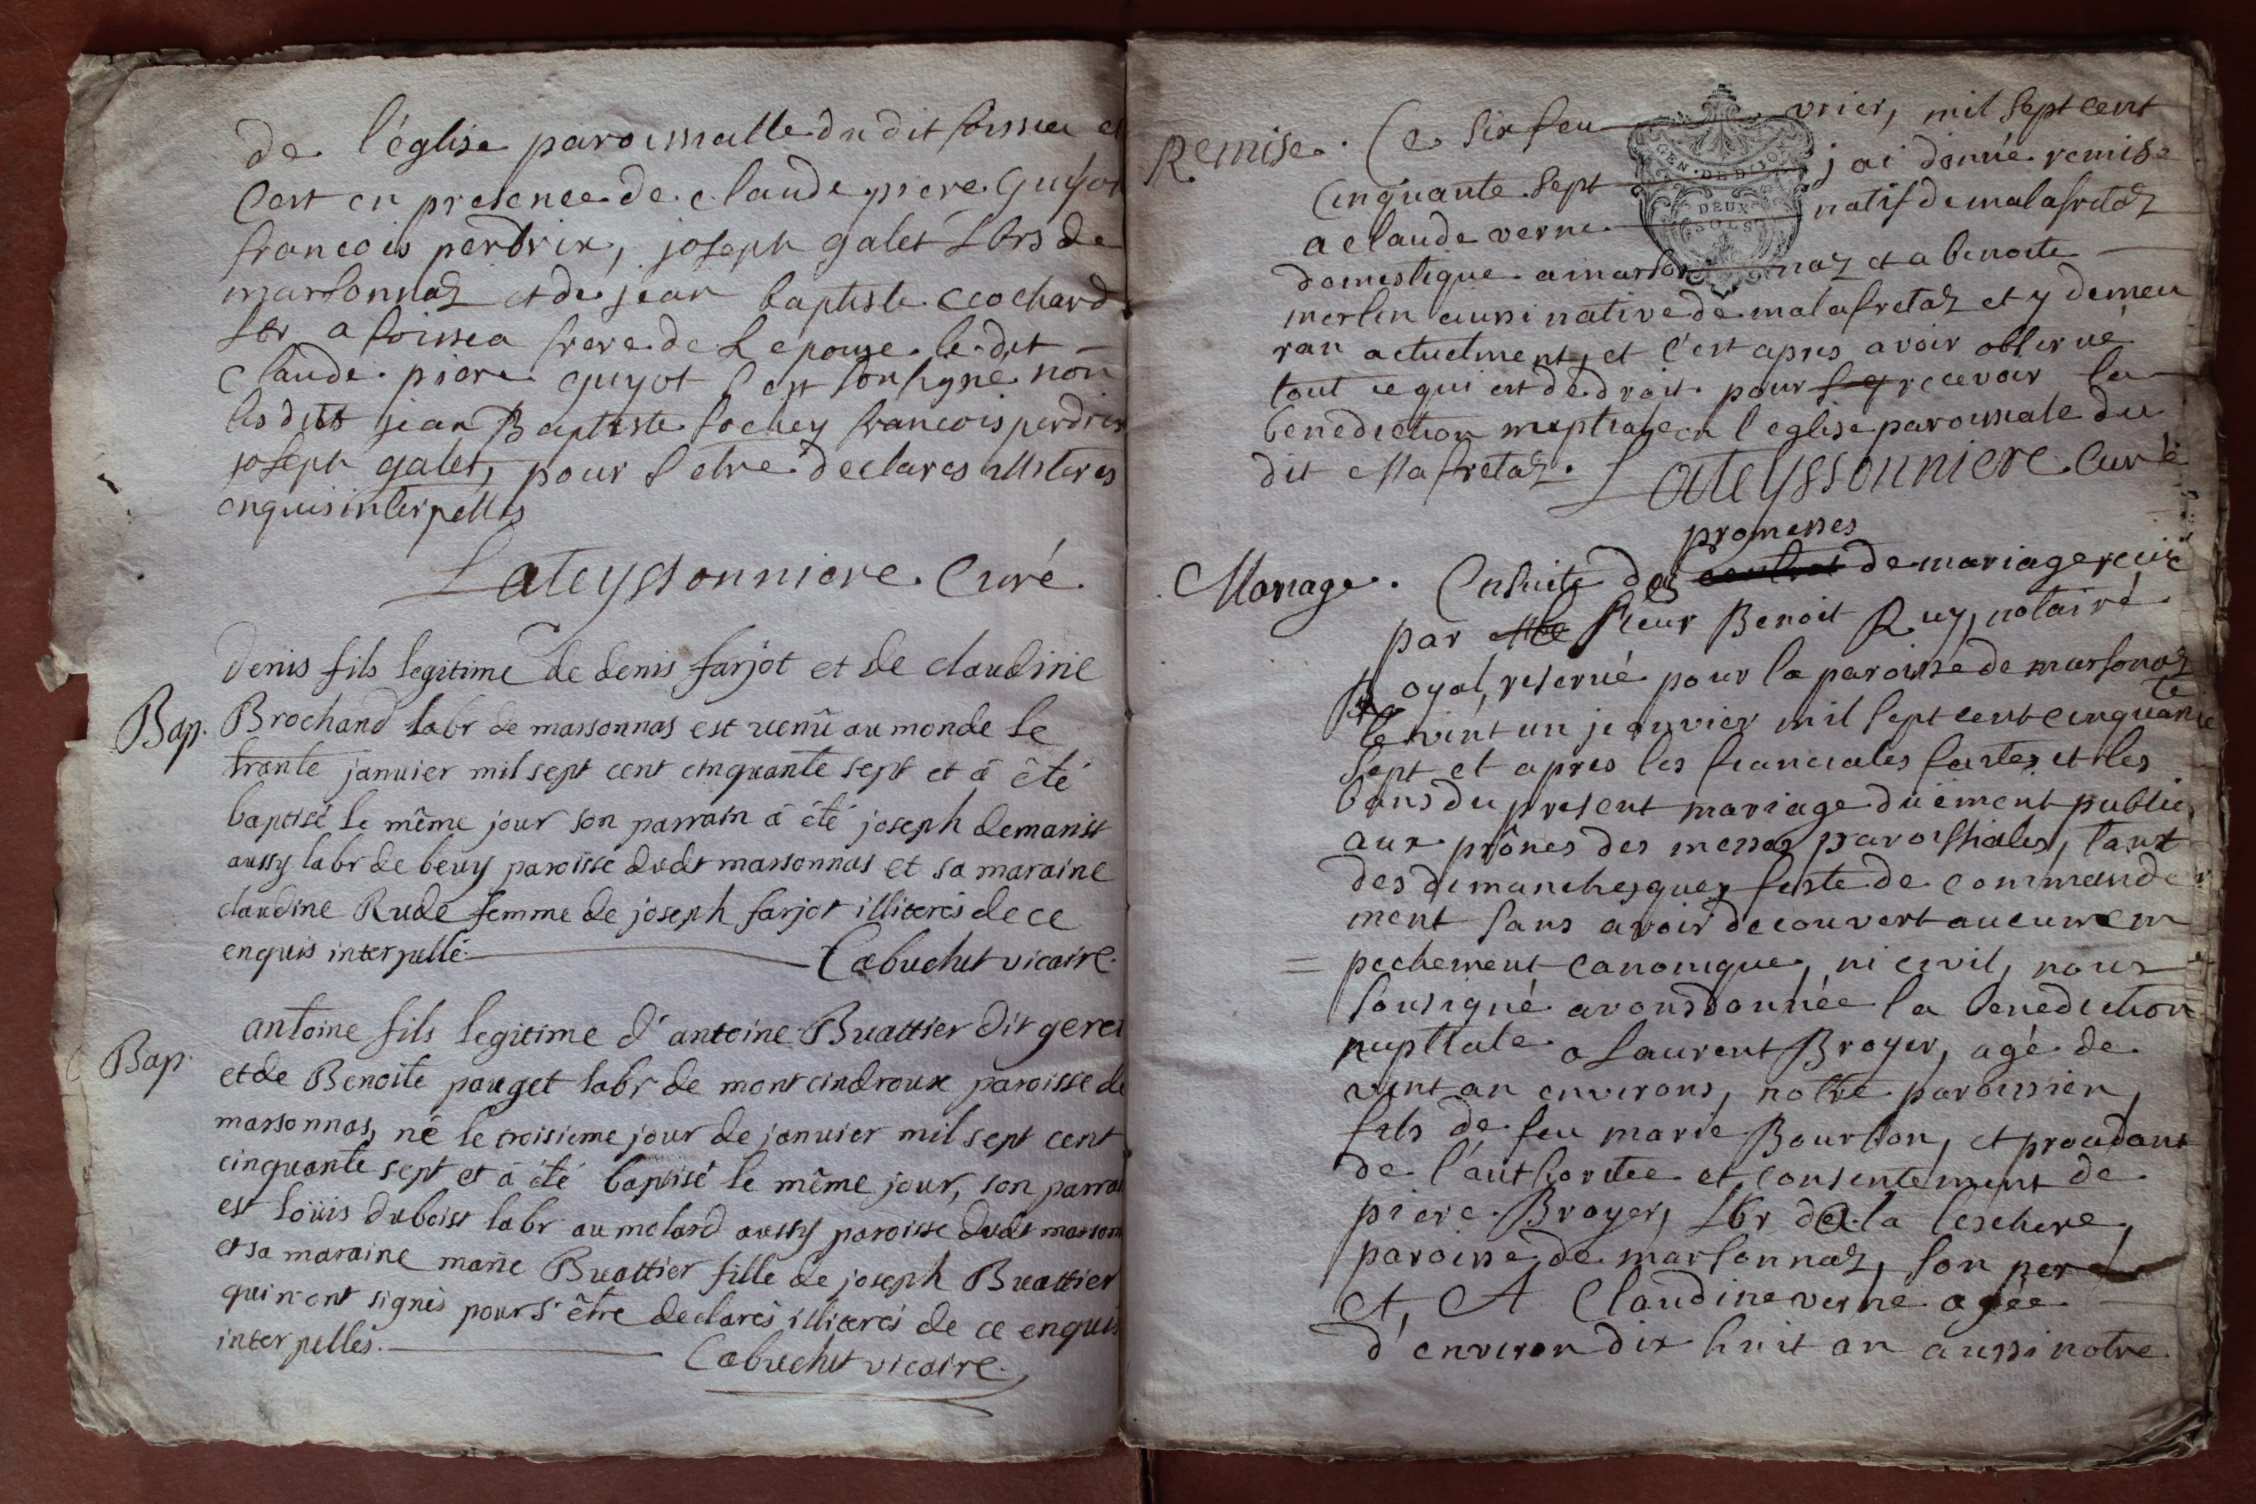 de l'église paroissialle du dit foissia et
c'est en presence de claude piere guyot
francois perdrix, joseph galet lbrs de
marsonnaz et de jean baptiste cochard
lbr a foissia frere de l epouse le dit
claude piere guyot s est sousigné non
les dits jean Baptiste francois perdrix
joseph galet, pour s etre declares illiteres
enquis interpellés
Lateyssonniere Curé
denis fils legitime de denis farjot et de claudine
Bap. Brochand labr de massonnas est venû au monde le
trante januier mil sept cent cinquante sept et â êté
baptisé le même jour son parrain â été joseph demanist
aussy labr de beuy paroisse dudt massonnas et sa maraine
claudine Rude femme de joseph farjot illiterés de ce
enquis interpellé. Cabuchet vicaire.
antoine fils legitime d'antoine Buattier dit gerei
Bap. et de Benoite pauget labr de montcindroux paroisse de
massonnas, né le troisieme jour de januier mil sept cent
cinquante sept et â été baptisé le même jour, son parrai
est loüis duboist labr au molard aussy paroisse dudt masson
et sa maraine marie Buattier fille de joseph Buattier
qui n'ont signés pour s'être declarés illiterés de ce enquis
interpellés. Cabuchet vicaire.
Remise. Ce six feu vrier, mil sept cent
GEN. DE DIJON
cinquante sept j ai donné remise
DEUX
a claude verne natif de malafretaz
SOLS
domestique a marson naz et a benoite
merlin aussi native de malafretaz et y demeu
ran actuelment, et c'est apres avoir observé
tout ce qui est de droit pour recevoir la
benediction nuptiale en l eglise paroissiale du
dit Mafretaz. Lateyssonniere Curé
promesses
Mariage. Ensuite des contrat de mariage recue
par Me sieur Benoit Ruy, notaire
Royal, reservé pour la paroisse de marsonaz
le vint un janvier mil sept cent cinquante
sept et apres les fianciales faites et les
bans du present mariage düement publié
aux prônes des messes paroissiales, tant
des dimanches que feste de commande
ment sans avoir decouvert aucun em
pechement canonique, ni civil, nous
sousigné avons donnée la benediction
nuptiale a laurent Broyer, agé de
vint an environs, notre paroissien,
fils de feu marie Bourbon, et procedant
de l'authoritée et consentement de
piere Broyer, lbr de la leschere,
paroisse de marsonnaz, son pere
et, A Claudine verne agée
d'environ dix huit an aussi notre